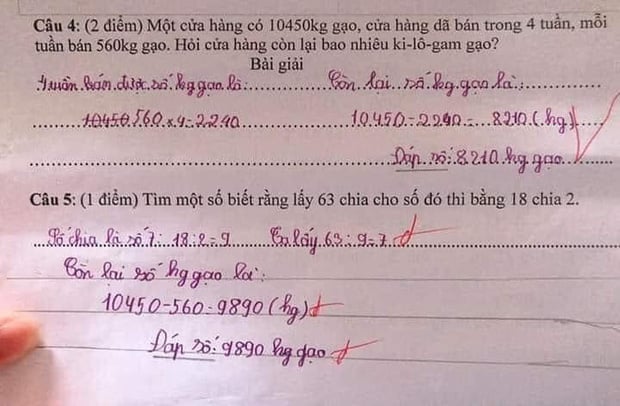 Câu 4: (2 điểm) Một cửa hàng có 10450kg gạo, cửa hàng đã bán trong 4 tuần, mỗi
tuần bán 560kg gạo. Hỏi cửa hàng còn lại bao nhiêu ki-lô-gam gạo?
Bài giải
4 tuần bán được số kg gạo là: Còn lai số kg gạo là:
10450 560 x 4 = 2240 10450 - 2240 = 8210 (kg)
Đáp số: 8210 kg gạo
Câu 5: (1 điểm) Tìm một số biết rằng lấy 63 chia cho số đó thì bằng 18 chia 2.
Số chia là số 7: 18 : 2 = 9 Ta lấy 63 : 9 = 7
Còn lai số kg gạo là:
10450 - 560 = 9890 (kg)
Đáp số: 9890 kg gạo